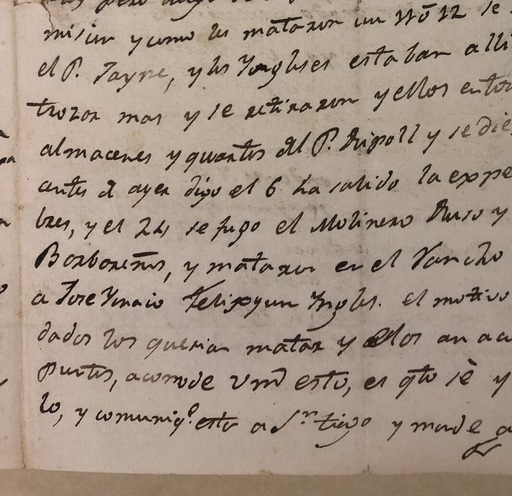 mision y como les mataron un Nº 12 se
el P. Jayme, y los Yngleses estaban alli
trozos mas y se retiraron y ellos enton
almacenes y quartos del P. Ripoll y se die
antes de ayer digo el 6 ha salido la expe
bres, y el 24 se fugo el Molinero Ruso y
Barbareños, y mataron en el Rancho
a Jose Ygnacio Felix y un Yngles. el motivo
dados los querian matar y ellos an a
puntes, acomode Vmd esto, es qto sè y
lo, y comuniqe. esto a Sn. tiago y mande a